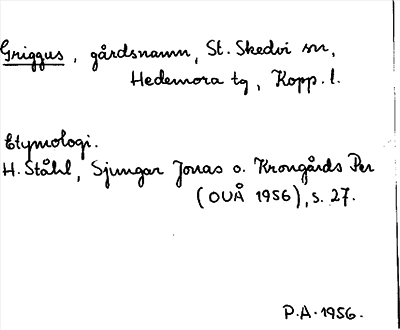 Griggus, gårdsnamn, St. Skedvi sn,
Hedemora tg, Kopp. l.
Etymologi.
H. Ståhl, Sjungar Jonas o. Krongårds Per
(OUÅ 1956), s. 27.
P.A. 1956.